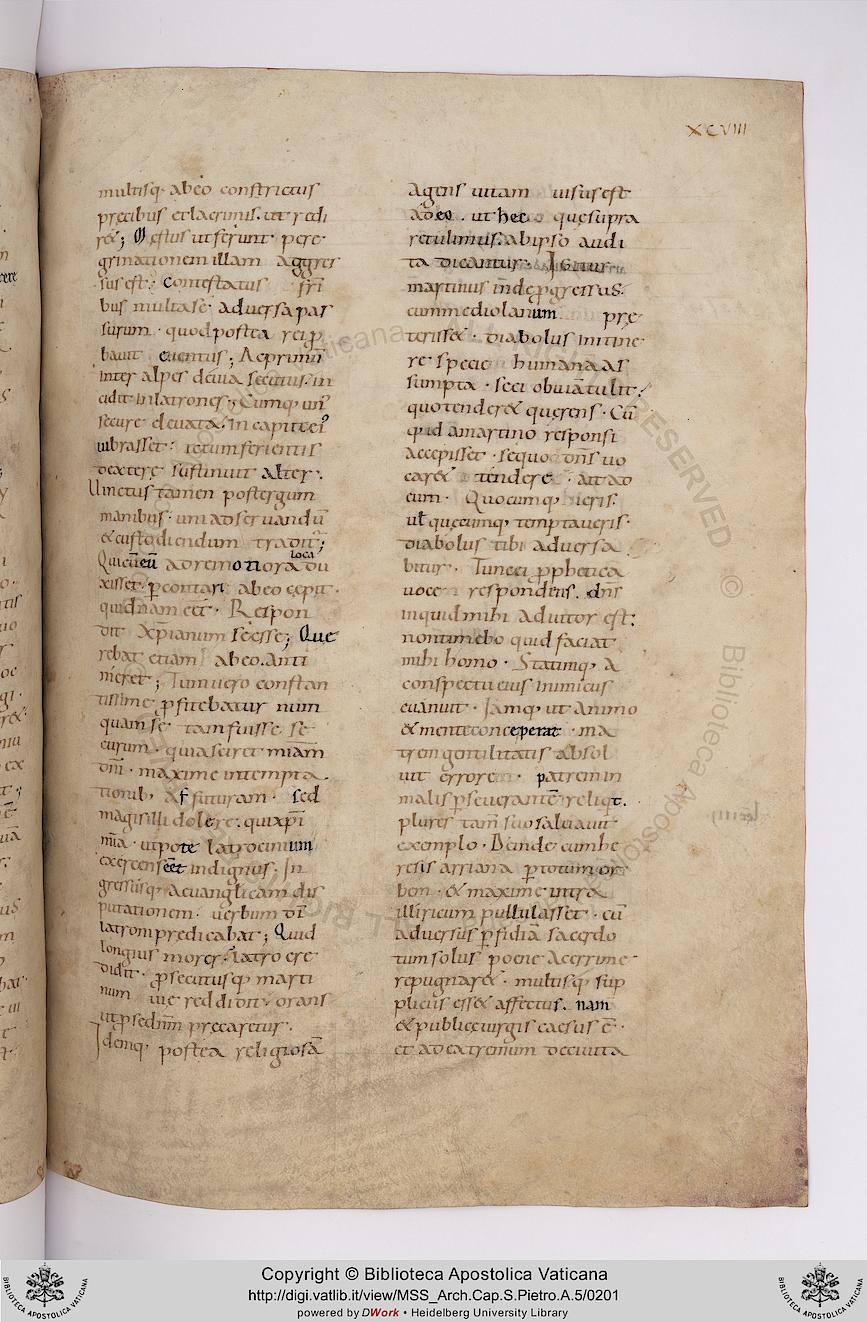 XCVIII
multisq· ab eo constrictus
precibus et lacrimis. ut redi
r&; Mestus ut ferunt· pere
grinationem illam aggres
sus est; Contestatus fr̄i
bus multa se· aduersa pas
surum · quod postea rei ꝓ
bauit euentus; Ac primū
inter alpes deuia secutus. in
cidit in latrones; Cumq; un'
secure eleuata. in capitt ei'
uibrasset· ictum ferientis
dextere sustinuit alter.
Uinctus tamen post ergum
manibus· uni adseruandū
& custodiendum tradit';
Qui cū eū ad remotiora loca du
xisset· ꝑcontari ab eo cepit·
quidnam eēt· Respon
dit xp̄ianum se esse; Que
rebat etiam ab eo. an ti
meret; Tum uero constan
tissime ꝓfitebatur num
quam se· tam fuisse se
curum · quia sciret miam̄
dn̄i · maxime in tempta
tionib; affuturam· sed
magis illi dolere. qui xp̄i
mīa· utpote latrocinium
exercens eēt indignus. In
gressusq; aeuanglicam dis
putationem· uerbum dī
latroni predicabat; Quid
longius morer. latro cre
didit· ꝓsecutusq; marti
num uie reddidit· orans
ut ꝓ se dn̄m precaretur.
Idemq; postea religiosā
Agens uitam uisus est
adeo . ut hec que supra
retulimus. ab ipso audi
ta dicantur· Igitur
martinus inde ꝓgressus.
cum mediolanum pre
teriss& · diabolus in itine
re specie humana as
sumpta · se ei obuiā tulit·
quo tender& querens· Cū
q; id a martino responsi
accepisset· se quo dn̄s uo
car& tendere · ait ad
eum· Quocumq; ieris.
uł quecumq; temptaueris·
diabolus tibi aduersa
bitur· Tunc ei ꝓphetica
uoce respondens. dn̄s
inquid mihi adiutor est;
non timebo quid faciat
mihi homo· Statimq; a
conspectu eius inimicus
euanuit· Iamq; ut animo
& mente conceperat · ma
trem gentilitatis absol
uit errore · patrem in
malis ꝑseuerantē reliqt.
plures tam̄ suo saluauit
exemplo· Dande cum he
resis arriana ꝑ totum or
bem· & maxime intra
illiricum pullulasset· cū
aduersus ꝑfidiā sacerdo
tum solus poene acerrime
repugnar&· multisq; sup
pliciis ess& affectus. nam
& publice uirgis caesus ē·
et ad extremum de ciuita
Copyright © Biblioteca Apostolica Vaticana
http://digi.vatlib.it/view/MSS_Arch.Cap.S.Pietro.A.5/0201
powered by DWork • Heidelberg University Library